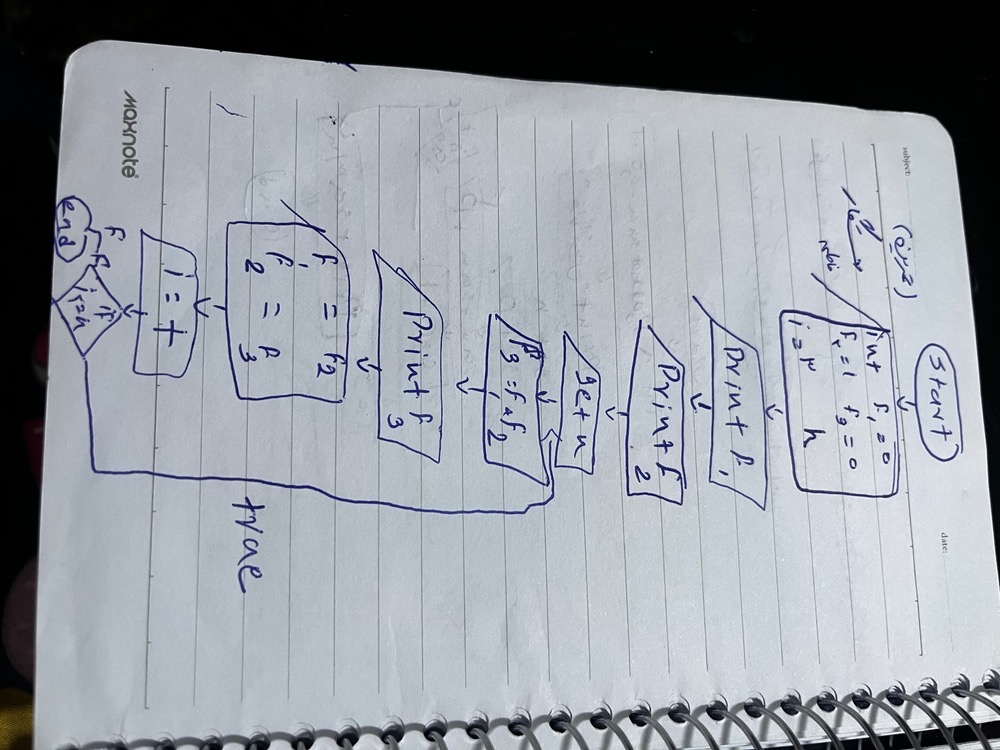 subject:
date:
Start
int f₁ = 0
f₂ = 1 f₃ = 0
i = ۳ n
Print f₁
Print f₂
get n
f₃ = f₁ + f₂
Print f₃
f₁ = f₂
f₂ = f₃
i = +
if
i<=n
true
F
end
maxnote